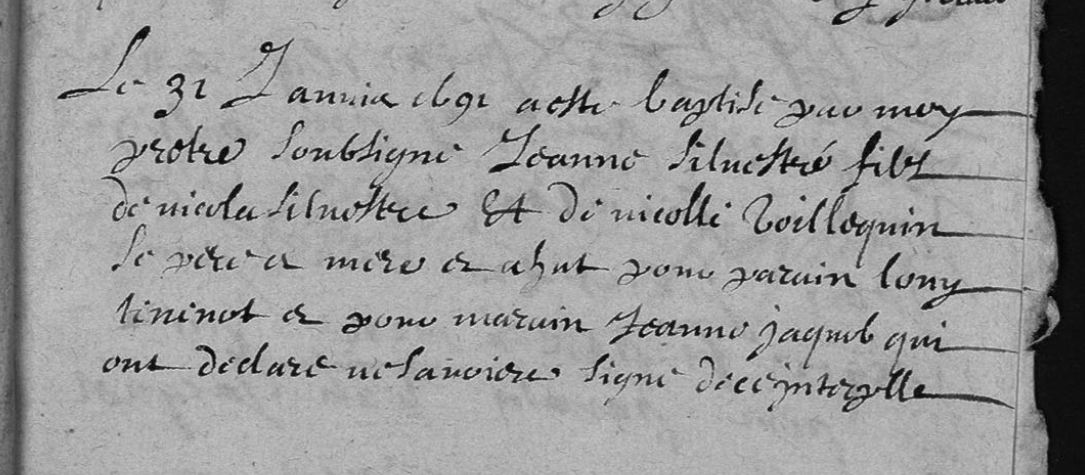 Le 31 Januie 1691 a este baptise par moy
pretre soubsigne Jeanne siluestre fille
de nicola siluestre Et de nicolle Voillequin
se pere et mere et a hut pour parain louy
et pour maraine Jeanne jaquob qui
ont declare ne savoiere signe de ce interpelle